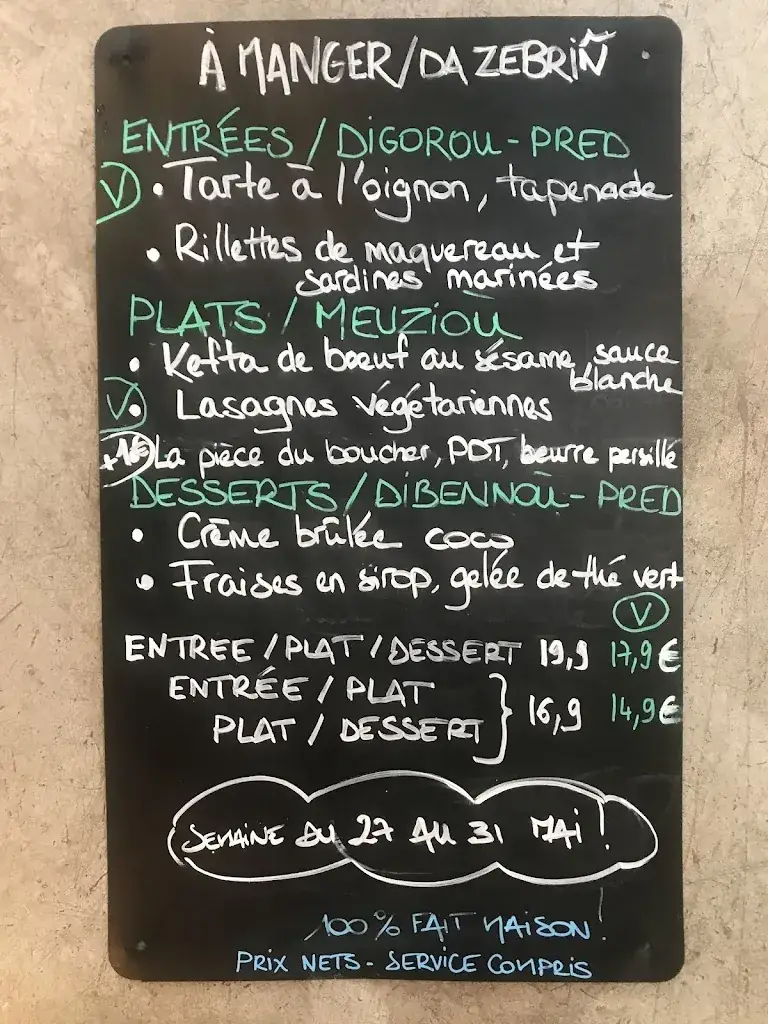 À MANGER/DA ZEBRIÑ
ENTRÉES / DIGOROU-PRED
V • Tarte à l'oignon, tapenade
• Rillettes de maquereau et
sardines marinées
PLATS / MEUZIOÙ
• Kefta de bœuf au sésame, sauce
blanche
V • Lasagnes végétariennes
+1€ La pièce du boucher, PDT, beurre persillé
DESSERTS / DIBENNOÙ-PRED
• Crème brûlée coco
• Fraises en sirop, gelée de thé vert
V
ENTREE / PLAT / DESSERT 19,9 17,9€
ENTRÉE / PLAT
PLAT / DESSERT } 16,9 14,9€
SEMAINE DU 27 AU 31 MAI !
100% FAIT MAISON !
PRIX NETS - SERVICE COMPRIS